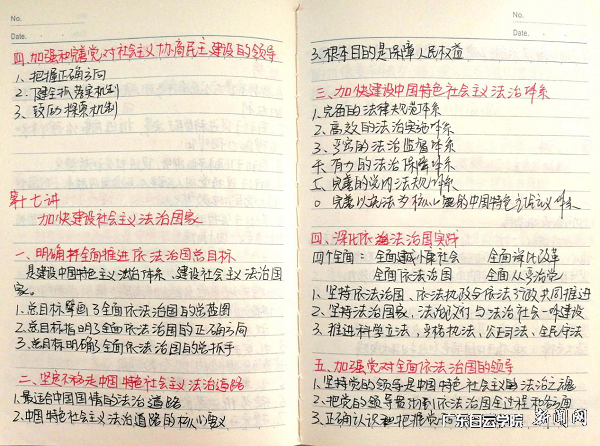 No.
Date.
四、加强和完善党对社会主义协商民主建设的领导
1、把握正确方向
2、健全抓落实机制
3、鼓励探索机制
第十七讲
加快建设社会主义法治国家
一、明确并全面推进依法治国总目标
是建设中国特色主义法治体系、建设社会主义法治国
家。
1.总目标擘画了全面依法治国的总蓝图
2.总目标指明了全面依法治国的正确方向
3.总目标明确了全面依法治国的总抓手
二、坚定不移走中国特色社会主义法治道路
1.最适合中国国情的法治道路
2.中国特色社会主义法治道路的核心要义
No.
Date.
3.根本目的是保障人民权益
三、加快建设中国特色社会主义法治体系
1.完备的法律规范体系
2.高效的法治实施体系
3.严密的法治监督体系
有力的法治保障体系
完善的党内法规体系
完善以宪法为核心的中国特色主义体系
四、深化依法治国实践
四个全面：全面建小康社会 全面深化改革
全面依法治国 全面从严治党
1.坚持依法治国、依法执政与依法行政共同推进
2.坚持法治国家，法治政府与法治社会一体建设
3.推进科学立法，严格执法，公正司法，全民守法
五、加强党对全面依法治国的领导
1.坚持党的领导是中国特色社会主义法治之魂
2.把党的领导贯彻到依法治国全过程和各方面
3.正确认识和把握党
广东白云学院 新闻网